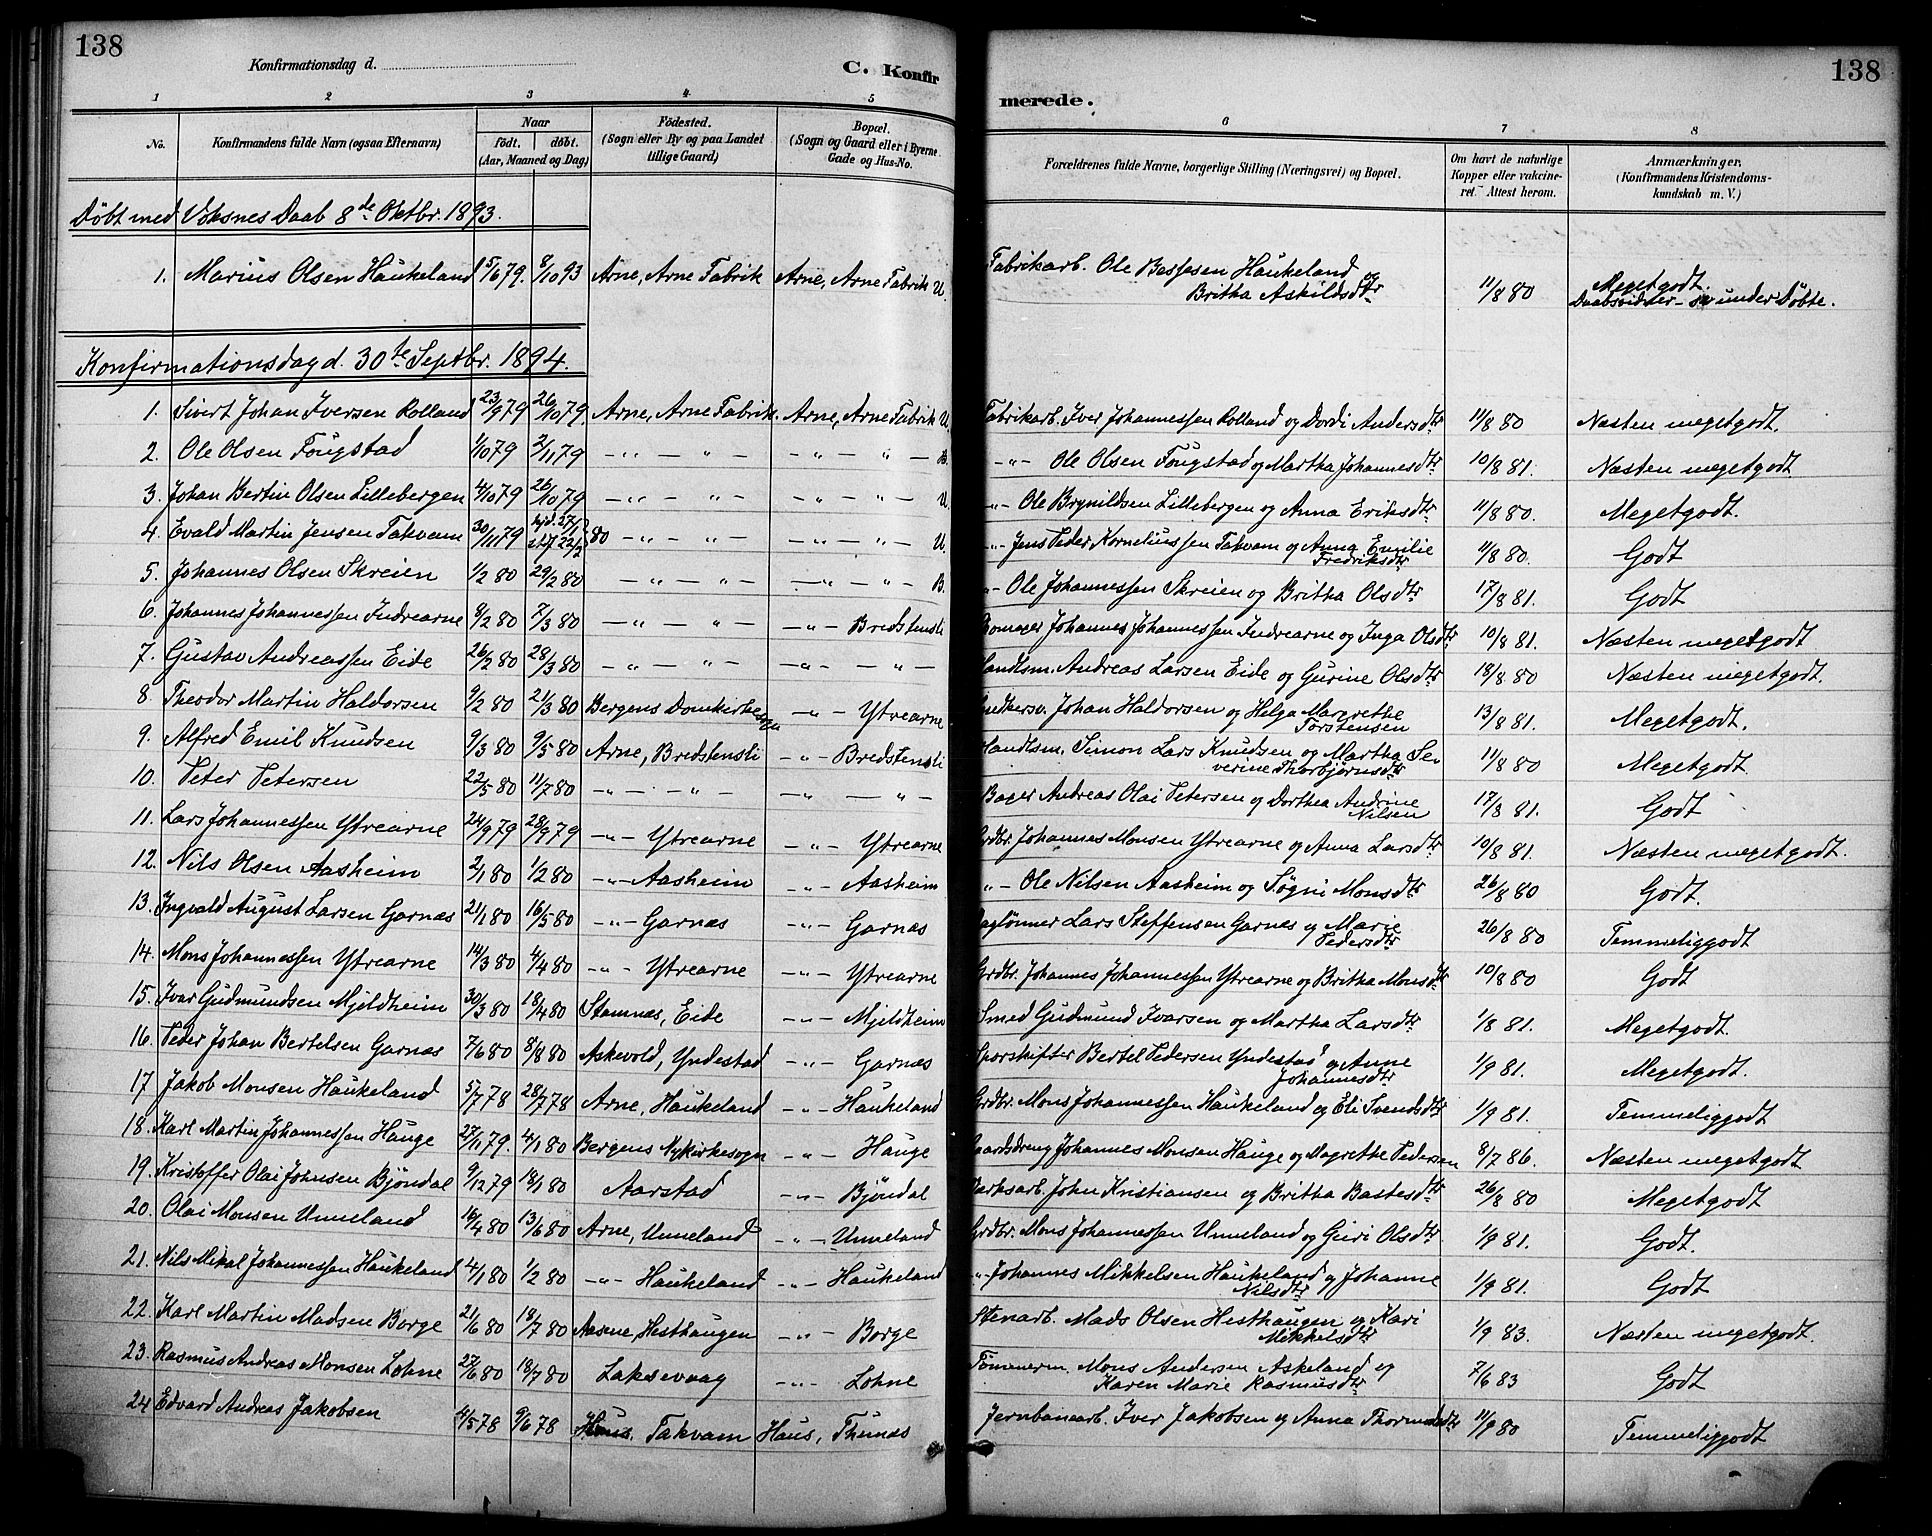 138
Konfirmationsdag d.
C. Konfir
merede.
138
1 2 3 4 5 6 7 8
No. Konfirmandens fulde Navn (ogsaa Efternavn) Naar født. døbt. (Aar, Maaned og Dag) Födested. (Sogn eller By og paa Landet tillige Gaard) Bopæl. (Sogn og Gaard eller i Byerne Gade og Hus-No. Forældrenes fulde Navne, borgerlige Stilling (Næringsvei) og Bopæl. Om havt de naturlige Kopper eller vakcineret. Attest herom. Anmærkninger, (Konfirmandens Kristendomskundskab m. V.)
Döbt med Voksnes Daab 8de Oktbr. 1893.
1. Marius Olsen Haukeland 5/6 79. 8/10 93 Arne, Arne Fabrik Arne, Arne Fabrik U. Fabrikarb. Ole Bassesen Haukeland og Britha Askildsdtr 11/8 80 Megetgodt. Daabsvidner - se under Döbte.
Konfirmationsdag d. 30te Septbr. 1894.
1. Sivert Johan Iversen Rolland 23/9 79 26/10 79. Arne, Arne Fabrik. Arne, Arne Fabrik U. Fabrikarb. Iver Johannessen Rolland og Dordi Andersdtr 11/8 80 Næsten megetgodt.
2. Ole Olsen Fougstad 1/10 79 2/11 79 — " — " — — " — " — B. — " — Ole Olsen Fougstad og Martha Johannesdtr 10/8 81. Næsten megetgodt
3. Johan Bertin Olsen Lillebergen 4/10 79 26/10 79 — " — " — — " — " — U. " — Ole Brynildsen Lillebergen og Anna Eriksdtr 11/8 80. Megetgodt.
4. Evald Martin Jensen Takvam 30/11 79 hjd. 27/1 stdf 22/2 80 — " — " — — " — " — U. " — Jens Peder Korneliussen Takvam og Anna Emilie Fredriksdtr 11/8 80. Godt
5. Johannes Olsen Skreien 1/2 80 29/2 80 — " — " — — " — " — B. " — Ole Johannessen Skreien og Britha Olsdtr 17/8 81. Godt
6. Johannes Johannessen Indrearne 8/2 80 7/3 80 — " — " — — " — Bredstensli Johannes Johannessen Indrearne og Inga Olsdtr 10/8 81. Næsten megetgodt
7. Gustav Andreassen Eide 26/2 80 28/3 80 — " — " — — " — " — Handlsm. Andreas Larsen Eide og Gurine Olsdtr 18/8 80 Næsten megetgodt.
8. Theodor Martin Haldorsen 9/2 80 21/3 80 Bergens Domkirkesogn — " — Ytrearne Johan Haldorsen og Helga Margrethe Torstensen 13/8 81. Megetgodt.
9. Alfred Emil Knudsen 9/3 80 9/5 80 Arne, Bredstensli — " — Bredstensli Handlsm. Simon Lars Knudsen og Martha Severine Thorbjørnsdtr 11/8 80 Megetgodt.
10. Peter Petersen 22/5 80 11/7 80 — " — " — — " — " — Bager Andreas Olai Petersen og Dorthea Andrine Nilsen 17/8 81. Godt
11. Lars Johannessen Ytrearne 24/9 79 28/9 79 — " — Ytrearne — " — Ytrearne Grdbr. Johannes Monsen Ytrearne og Anna Larsdtr 10/8 81. Næsten megetgodt.
12. Nils Olsen Aasheim 2/1 80 1/2 80 — " — Aasheim — " — Aasheim " — Ole Nilsen Aasheim og Søgni Monsdtr 26/8 80 Godt.
13. Ingvald August Larsen Garnæs 21/1 80 16/5 80 — " — Garnæs — " — Garnæs Daglønner Lars Steffensen Garnæs og Marie Pedersdtr 26/8 80 Temmeliggodt
14. Mons Johannessen Ytrearne 14/3 80 4/4 80 — " — Ytrearne — " — Ytrearne Grdbr. Johannes Johannessen Ytrearne og Britha Monsdtr 10/8 80 Godt
15. Ivar Gudmundsen Mjeldheim 30/3 80 18/4 80 Stamnæs, Eide — " — Mjeldheim Smed Gudmund Ivarsen og Martha Larsdtr 1/8 81. Megetgodt.
16. Peder Johan Bertelsen Garnæs 7/6 80 8/8 80 Askevold, Yndestad — " — Garnæs Sporskifter Bertel Pedersen Yndestad og Anne Johannesdtr 1/9 81. Megetgodt.
17 Jakob Monsen Haukeland 5/7 78 28/7 78 Arne, Haukeland — " — Haukeland Grdbr. Mons Johannessen Haukeland og Eli Svendsdtr 1/9 81. Temmeliggodt
18. Karl Martin Johannessen Hauge 27/11 79. 4/1 80 Bergens Nykirkesogn — " — Hauge Gaardsdreng Johannes Monsen Hauge og Dagrethe Pedersen 8/7 86. Næsten megetgodt
19. Kristoffer Olai Johnsen Bjöndal 9/12 79 18/1 80 Aarstad — " — Bjöndal John Kristiansen og Britha Bastesdtr 26/8 80 Megetgodt
20. Olai Monsen Unneland 16/4 80 13/6 80 Arne, Unneland — " — Unneland Grdbr. Mons Johannessen Unneland og Guri Olsdtr 1/9 81. Godt.
21. Nils Mikal Johannessen Haukeland 4/1 80 1/2 80 — " — Haukeland — " — Haukeland " — Johannes Mikkelsen Haukeland og Johanne Nilsdtr 1/9 81. Godt
22. Karl Martin Madsen Borge 21/6 80 18/7 80 Aasne, Hesthaugen — " — Borge Stenarb. Mads Olsen Hesthaugen og Kari Mikkelsdtr 1/9 83. Næsten megetgodt.
23. Rasmus Andreas Monsen Lohne 27/6 80 18/7 80 Laksevaag — " — Lohne Tömmerm. Mons Andersen Askeland og Karen Marie Rasmusdtr 7/6 83 Godt
24 Edvard Andreas Jakobsen 4/5 78 9/6 78 Haus, Takvam Haus, Thunæs Jernbanearb. Iver Jakobsen og Anna Thormodsdtr 11/9 80 Temmeliggodt